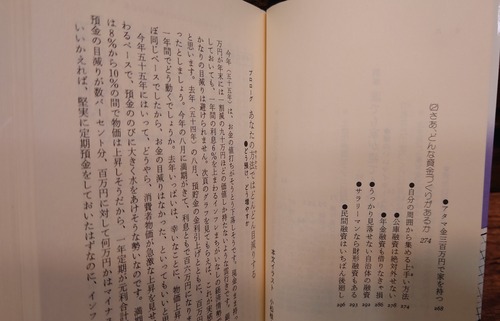 さあ、どんな資金づくりがあるか 274
●アタマ金三百万円で家を持つ 268
●自分の周囲から集める上手い方法 274
●公庫融資は絶対外せない
●年金融資も借りなきゃ損
●うっかり見落せない自治体の融資
●サラリーマンなら財形融資もある
●民間融資はいちばん後廻し
プロローグ あなたの万円ではどんどん目減りする
今年(五十五年)は、お金の値打ちが
しておいても、一年間の利息6%を
かなりの目減りは避けられません。次頁のグラフを見てもらえば、これが実感
と思います。去年(五十四年)の八月、預貯金の金利引上げと
ったとしましょう。今年の八月に満期がきて、利息ともで百六万円になりま
一年間でどう動くでしょうか。去年いっぱいは、幸いなことに、物価上昇
ぼ同じペースでしたから、お金の目減りはなかった、といってもいいと
今年五十五年にはいって、どうやら、消費者物価が急激な上昇を見せ
わるペースで、預金ののびに大きく水をあけそうな勢いなのです。満期
は8%から10%の間で物価は上昇しそうだから、一年定期が元利合計
預金の目減りが数パーセント分、百万円に対して何万円かはマイナ
いいかえれば、堅実に定期預金をしておいたはずなのに、インフ